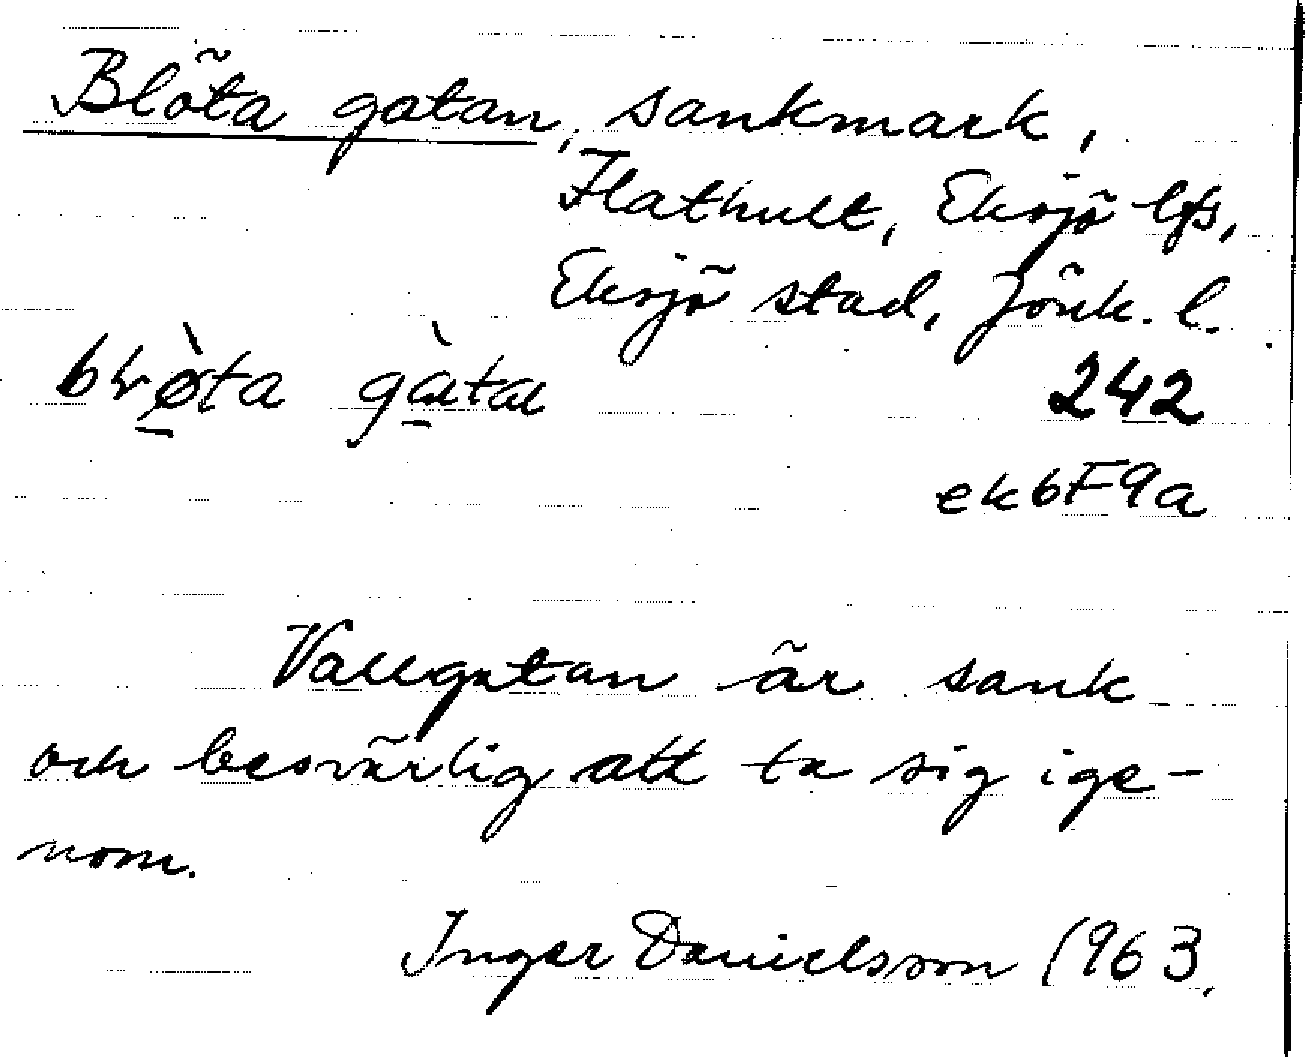 Blöta gatan, sankmark,
Flathult, Eksjö lfs,
Eksjö stad, Jönk. l.
blø̀ta gàta
242
ek6F9a
Vallgatan är sank
och besvärlig att ta sig ige-
nom.
Inger Danielsson 1963.